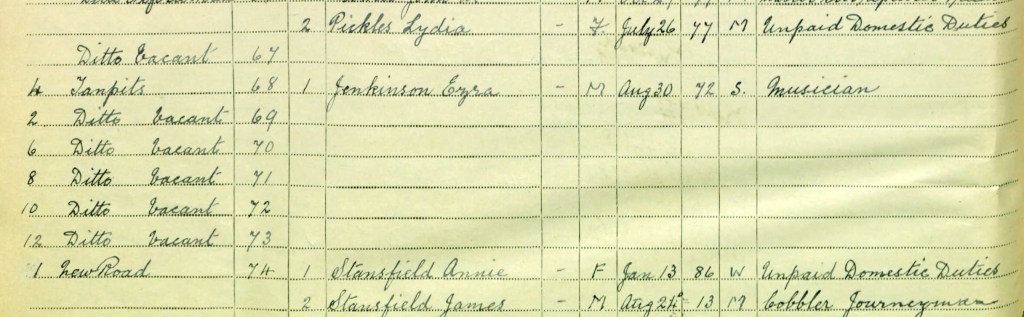 2 Pickles Lydia - F July 26 77 M Unpaid Domestic Duties
Ditto Vacant 67
4 Tanpits 68 1 Jenkinson Ezra - M Aug 30 72 S. Musician
2 Ditto Vacant 69
6 Ditto Vacant 70
8 Ditto Vacant 71
10 Ditto Vacant 72
12 Ditto Vacant 73
1 New Road 74 1 Stansfield Annie - F Jan 13 86 W Unpaid Domestic Duties
2 Stansfield James - M Aug 24 13 M Cobbler Journeyman